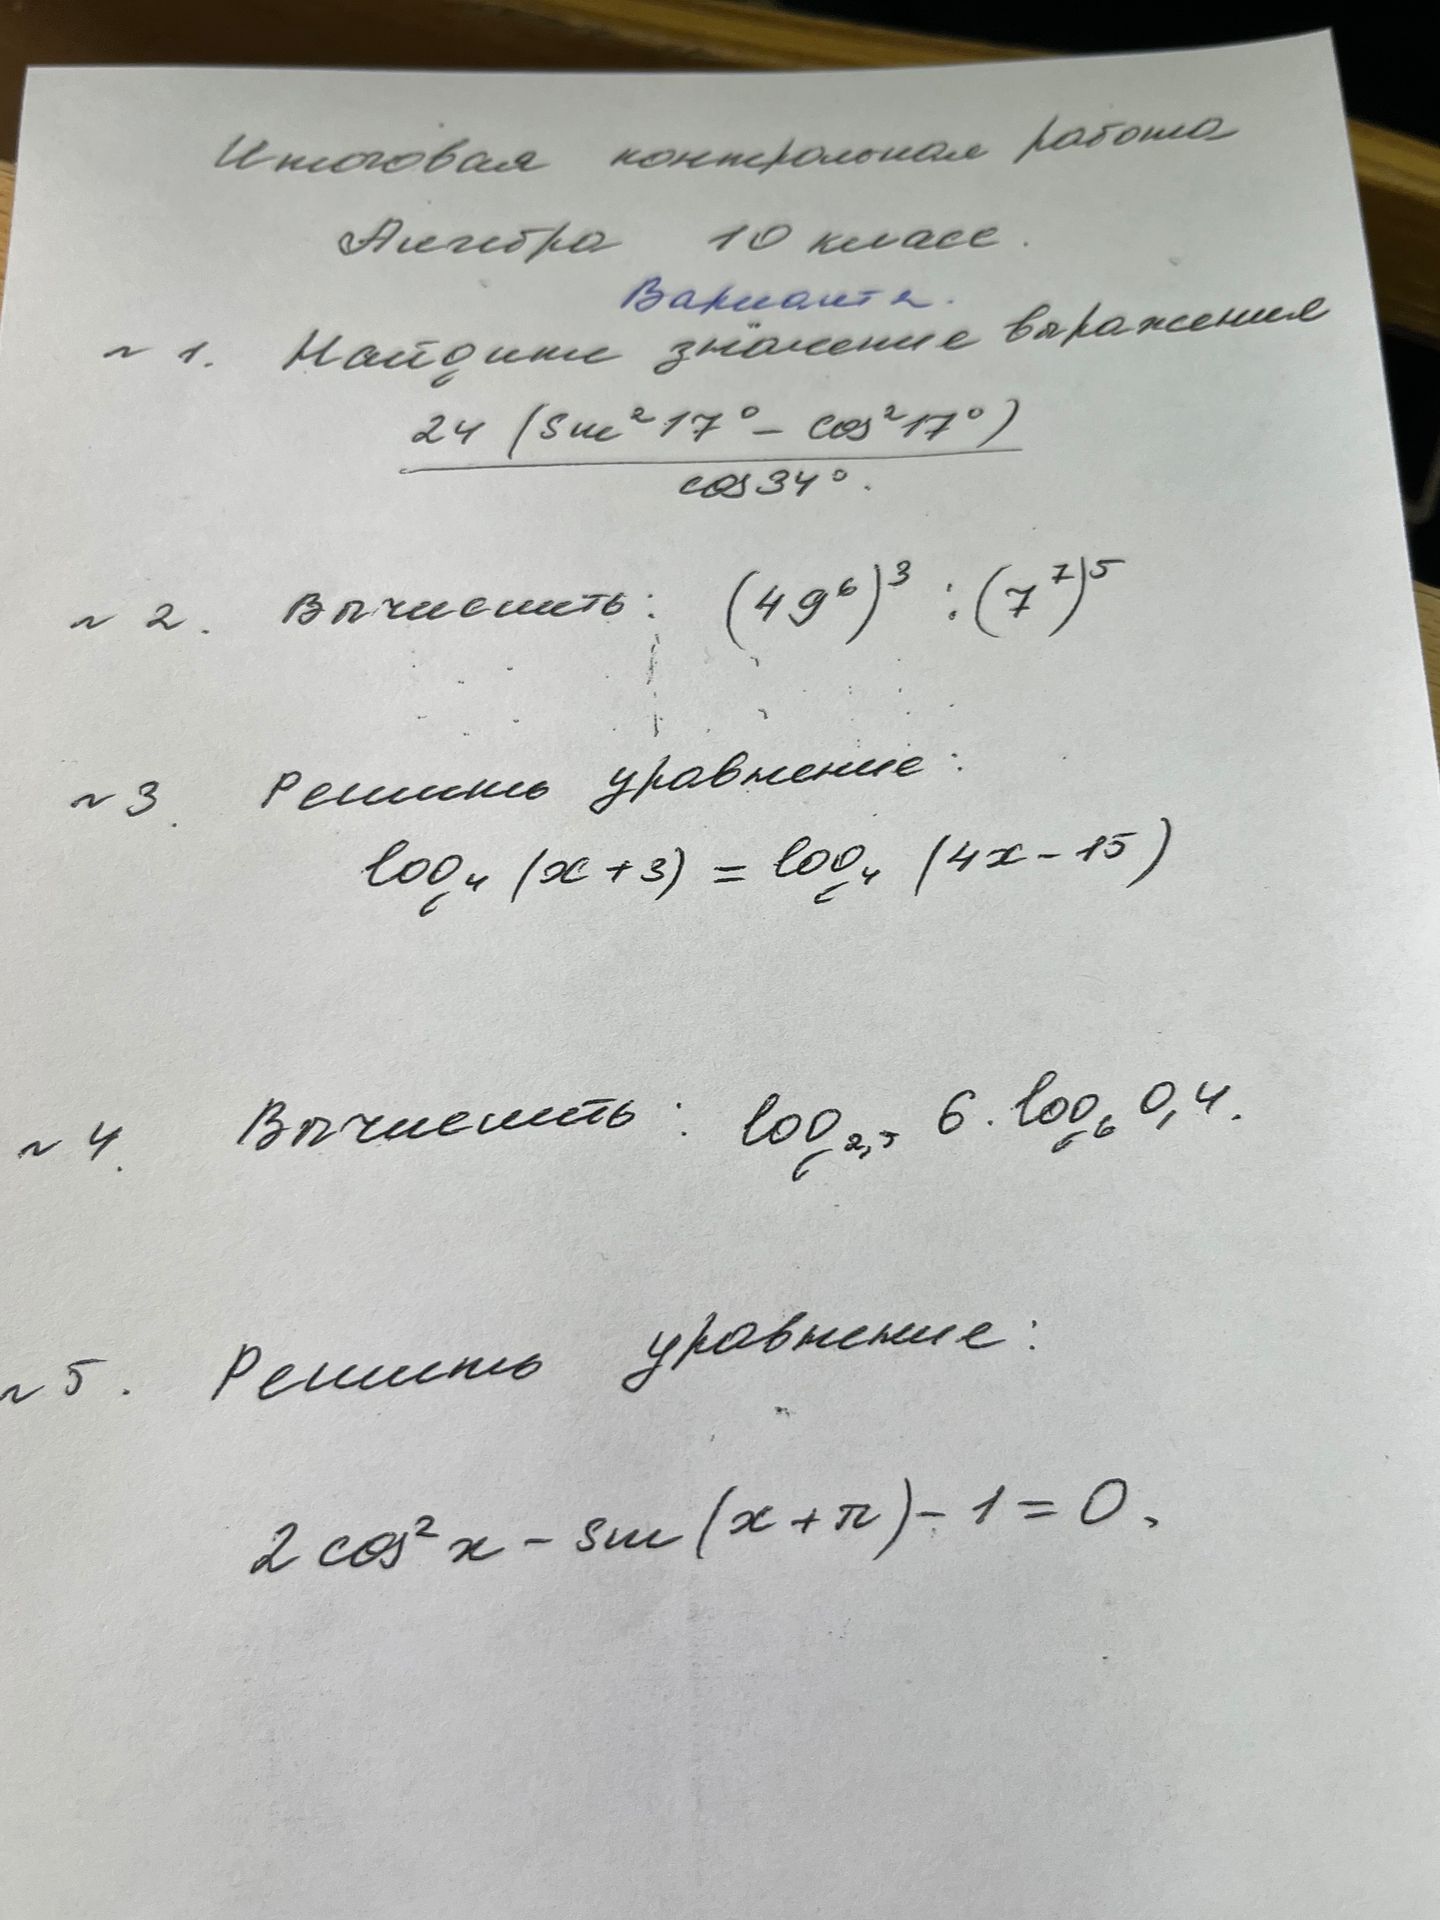 Итоговая контрольная работа
Алгебра 10 класс.
Вариант 2.
№ 1. Найдите значение выражения
24 (sin²17° – cos²17°)
cos34°.
№ 2. Вычислить: (49⁶)³ : (7⁷)⁵
№ 3. Решить уравнение:
log₄ (x+3) = log₄ (4x – 15)
№ 4. Вычислить: log₂,₅ 6 · log₆ 0,4.
№ 5. Решить уравнение:
2 cos² x – sin (x + π) – 1 = 0.